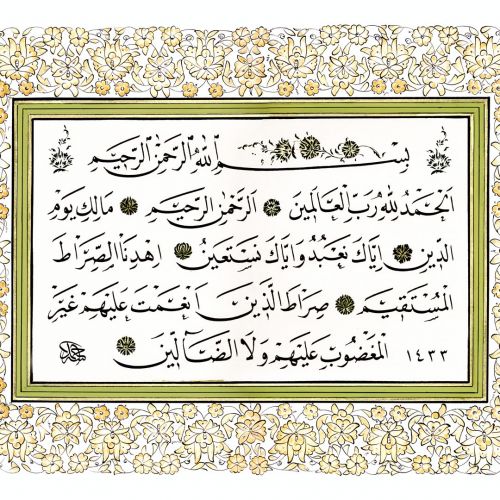 بِسْمِ اللهِ الرَّحْمٰنِ الرَّحِيْمِ
اَلْحَمْدُ لِلّٰهِ رَبِّ الْعَالَمِيْنَ اَلرَّحْمٰنِ الرَّحِيْمِ مَالِكِ يَوْمِ
الدِّيْنِ اِيَّاكَ نَعْبُدُ وَاِيَّاكَ نَسْتَعِيْنُ اِهْدِنَا الصِّرَاطَ
الْمُسْتَقِيْمَ صِرَاطَ الَّذِيْنَ اَنْعَمْتَ عَلَيْهِمْ غَيْرِ
الْمَغْضُوْبِ عَلَيْهِمْ وَلَا الضَّآلِّيْنَ ١٤٣٣